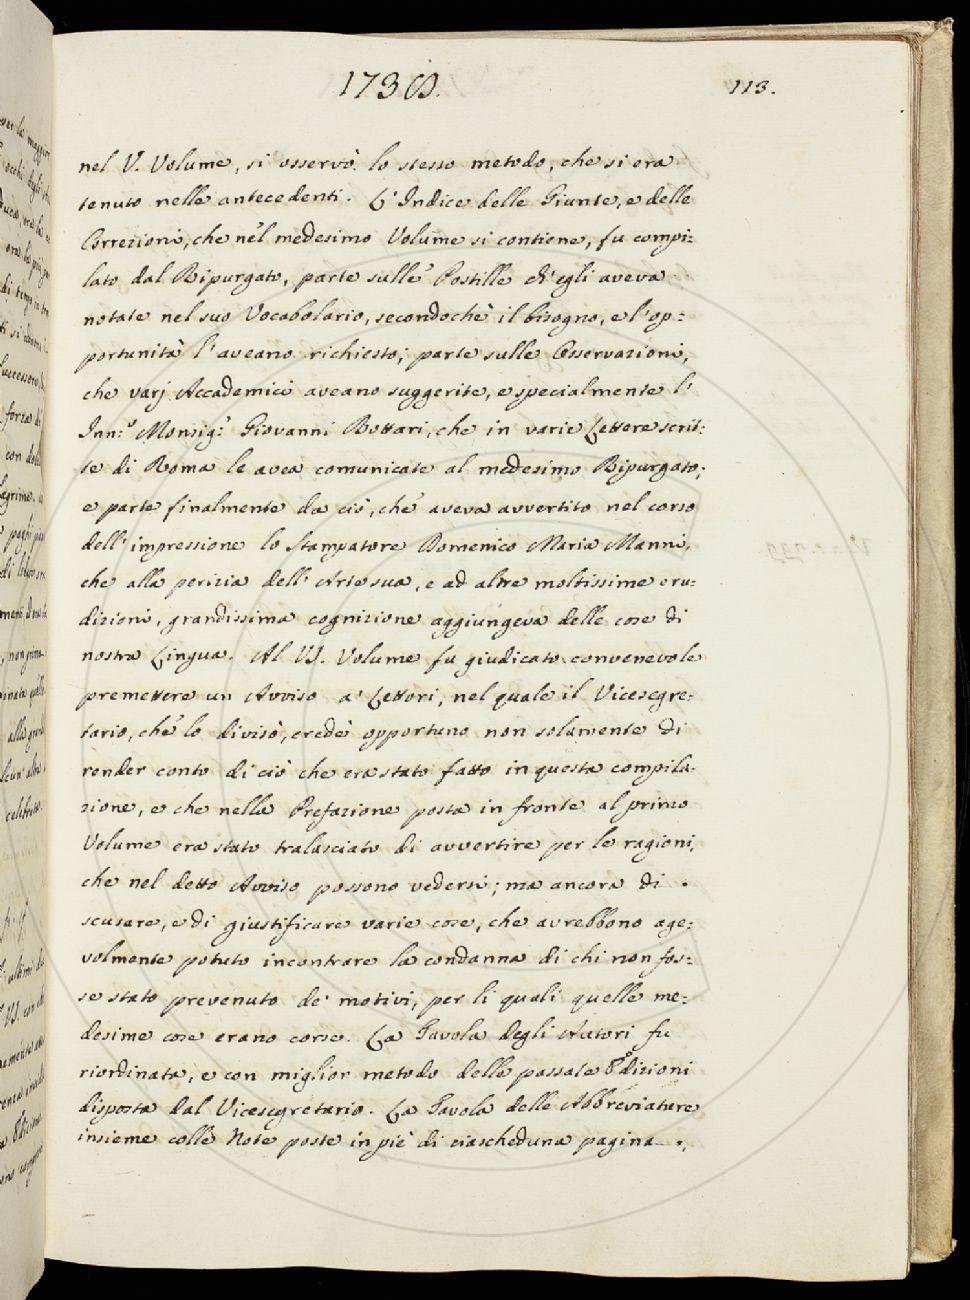 1738.
113.
nel V. Volume, si osservò lo stesso metodo, che si era
tenuto nelle antecedenti. L'Indice delle Giunte, e delle
Correzioni, che nel medesimo Volume si contiene, fu compi:
lato dal Ripurgato, parte sulle Postille ch'egli aveva
notate nel suo Vocabolario, secondochè il bisogno, e l'op:
portunità l'aveano richiesto; parte sulle Osservazioni,
che varj Accademici aveano suggerite, e specialmente l'
Inn:º Monsig:r Giovanni Bottari, che in varie Lettere scrit:
te di Roma le avea comunicate al medesimo Ripurgato;
e parte finalmente da ciò, che aveva avvertito nel corso
dell'impressione lo Stampatore Domenico Maria Manni,
che alla perizia dell'Arte sua, e ad altre moltissime eru:
dizioni, grandissima cognizione aggiungeva delle cose di
nostra Lingua. Al VI. Volume fu giudicato convenevole
premettere un Avviso a' Lettori, nel quale il Vicesegre:
tario, che lo divisò, credè opportuno non solamente di
render conto di ciò che era stato fatto in questa compila:
zione, e che nella Prefazione posta in fronte al primo
Volume era stato tralasciato di avvertire per le ragioni,
che nel detto Avviso possono vedersi; ma ancora di
scusare, e di giustificare varie cose, che avrebbono age:
volmente potuto incontrare la condanna di chi non fos:
se stato prevenuto de' motivi, per li quali quelle me:
desime cose erano corse. La Tavola degli Autori fu
riordinata, e con miglior metodo delle passate Edizioni
disposta dal Vicesegretario. La Tavola delle Abbreviature
insieme colle Note poste in piè di ciascheduna pagina